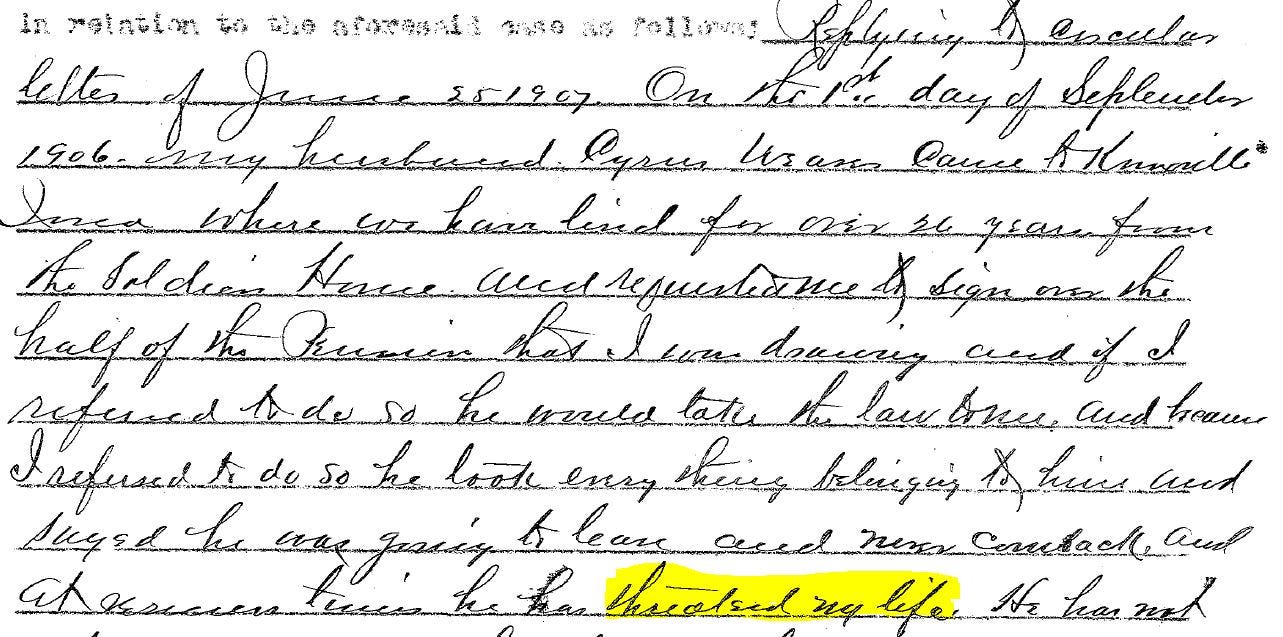 in relation to the aforesaid case as follows; Replying to circular
letter of June 25 1907. On the 1st day of September
1906. my husband Cyrus Weaver Came to Knoxville
Iowa where we have lived for over 26 years from
the Soldiers Home. and requested me to sign over the
half of the Pension that I was drawing and if I
refused to do so he would take the law to me. and because
I refused to do so he took every thing belonging to him and
sayed he was going to leave and never come back, and
at various times he has threatend my life. He has not